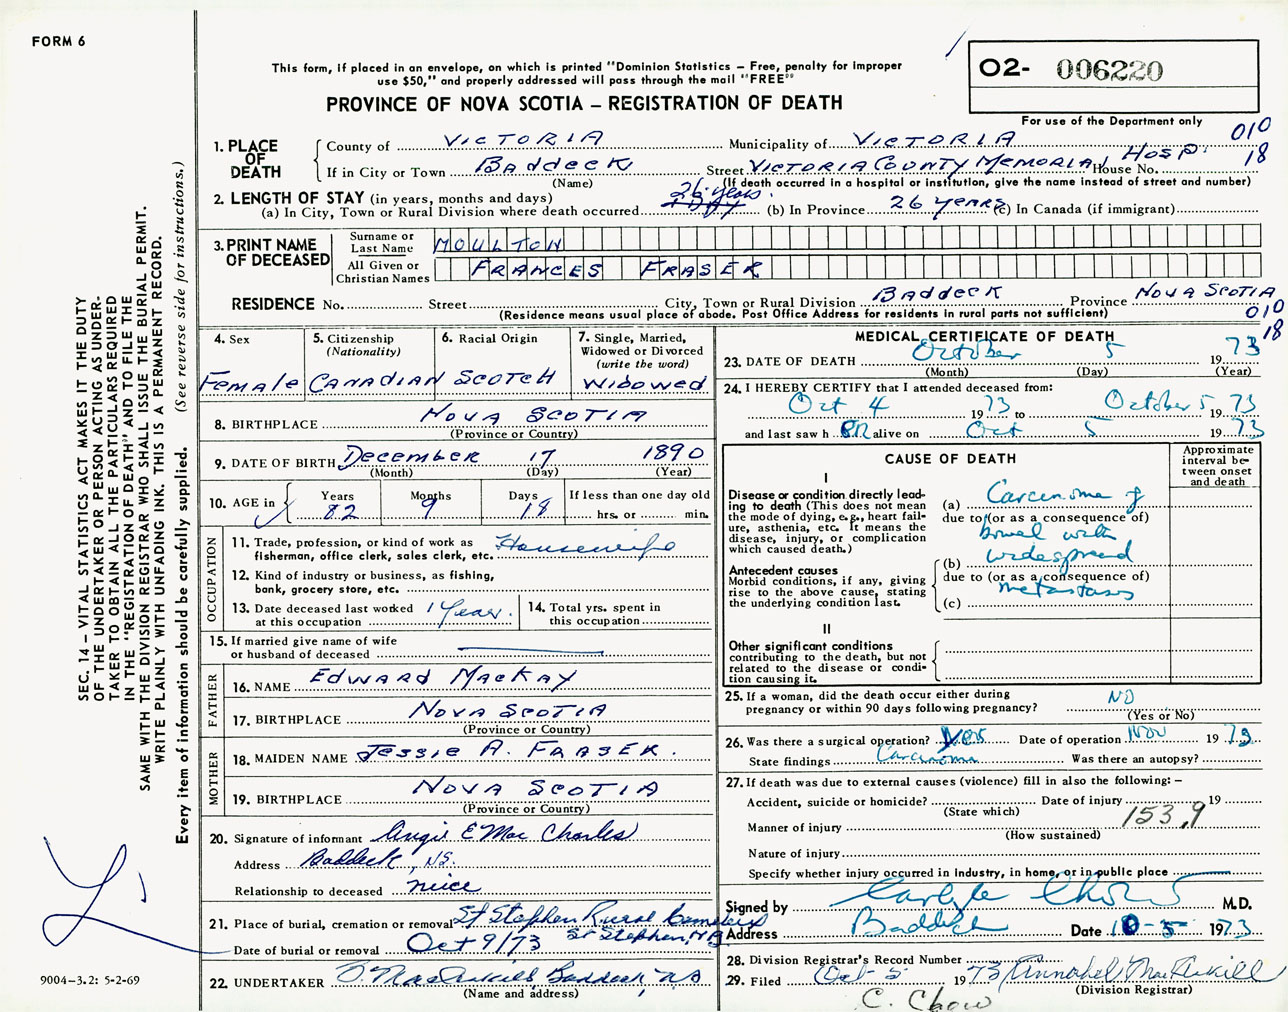 FORM 6
This form, if placed in an envelope, on which is printed "Dominion Statistics – Free, penalty for improper
use $50," and properly addressed will pass through the mail "FREE"
PROVINCE OF NOVA SCOTIA – REGISTRATION OF DEATH
O2- 006220
For use of the Department only
010
18
1. PLACE OF DEATH
County of VICTORIA Municipality of VICTORIA
If in City or Town BADDECK Street VICTORIA COUNTY MEMORIAL HOSP. House No.
(Name) (If death occurred in a hospital or institution, give the name instead of street and number)
2. LENGTH OF STAY (in years, months and days)
(a) In City, Town or Rural Division where death occurred 26 years (b) In Province 26 years (c) In Canada (if immigrant)
3. PRINT NAME OF DECEASED
Surname or Last Name MOULTON
All Given or Christian Names FRANCES FRASER
RESIDENCE No. Street City, Town or Rural Division BADDECK Province NOVA SCOTIA
(Residence means usual place of abode. Post Office Address for residents in rural parts not sufficient)
010
18
4. Sex Female
5. Citizenship (Nationality) CANADIAN
6. Racial Origin SCOTCH
7. Single, Married, Widowed or Divorced (write the word) WIDOWED
8. BIRTHPLACE NOVA SCOTIA
(Province or Country)
9. DATE OF BIRTH December 17 1890
(Month) (Day) (Year)
10. AGE in Years 82 Months 9 Days 18 If less than one day old
hrs. or min.
OCCUPATION
11. Trade, profession, or kind of work as
fisherman, office clerk, sales clerk, etc. Housewife
12. Kind of industry or business, as fishing,
bank, grocery store, etc.
13. Date deceased last worked
at this occupation 1 Year.
14. Total yrs. spent in
this occupation
15. If married give name of wife
or husband of deceased
FATHER
16. NAME EDWARD MACKAY
17. BIRTHPLACE NOVA SCOTIA
(Province or Country)
MOTHER
18. MAIDEN NAME JESSIE A. FRASER.
19. BIRTHPLACE NOVA SCOTIA
(Province or Country)
20. Signature of informant Angie E Mac Charles
Address Baddeck, NS.
Relationship to deceased niece
21. Place of burial, cremation or removal St Stephen Rural Cemetery
St Stephen, N B
Date of burial or removal Oct 9/73
22. UNDERTAKER MacAskill, Baddeck, NS
(Name and address)
MEDICAL CERTIFICATE OF DEATH
23. DATE OF DEATH October 5 1973
(Month) (Day) (Year)
24. I HEREBY CERTIFY that I attended deceased from:
Oct 4 1973 to October 5 1973
and last saw h ER alive on Oct 5 1973
CAUSE OF DEATH
Approximate interval between onset and death
I
Disease or condition directly lead-
ing to death (This does not mean
the mode of dying, e.g., heart fail-
ure, asthenia, etc. It means the
disease, injury, or complication
which caused death.)
(a) Carcinoma of
due to (or as a consequence of)
bowel with
Antecedent causes
Morbid conditions, if any, giving
rise to the above cause, stating
the underlying condition last.
(b) widespread
due to (or as a consequence of)
metastases
(c)
II
Other significant conditions
contributing to the death, but not
related to the disease or condi-
tion causing it.
25. If a woman, did the death occur either during
pregnancy or within 90 days following pregnancy? NO
(Yes or No)
26. Was there a surgical operation? Yes Date of operation Nov 1973
State findings Carcinoma Was there an autopsy?
27. If death was due to external causes (violence) fill in also the following: –
Accident, suicide or homicide? Date of injury 19
(State which)
153.9
Manner of injury
(How sustained)
Nature of injury
Specify whether injury occurred in industry, in home, or in public place
Signed by Carlyle Chow M.D.
Address Baddeck Date 10-5-1973
28. Division Registrar's Record Number
29. Filed Oct 5 1973 Annabel MacAskill
(Division Registrar)
C. Chow
SEC. 14 – VITAL STATISTICS ACT MAKES IT THE DUTY
OF THE UNDERTAKER OR PERSON ACTING AS UNDER-
TAKER TO OBTAIN ALL THE PARTICULARS REQUIRED
IN THE "REGISTRATION OF DEATH" AND TO FILE THE
SAME WITH THE DIVISION REGISTRAR WHO SHALL ISSUE THE BURIAL PERMIT.
WRITE PLAINLY WITH UNFADING INK. THIS IS A PERMANENT RECORD.
Every item of information should be carefully supplied. (See reverse side for instructions.)
9004–3.2: 5-2-69